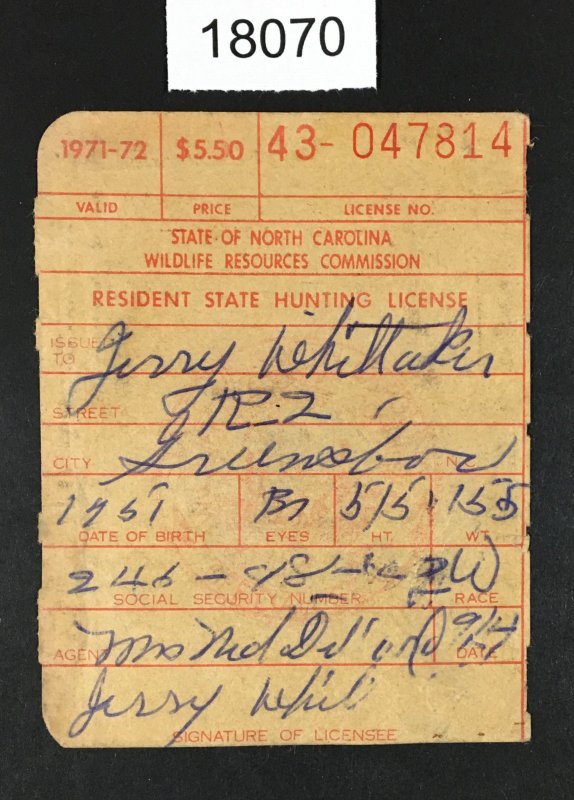 18070
1971-72 $5.50 43- 047814
VALID PRICE LICENSE NO.
STATE OF NORTH CAROLINA
WILDLIFE RESOURCES COMMISSION
RESIDENT STATE HUNTING LICENSE
ISSUED TO Jerry Whittaker
STREET R-2
CITY Greensboro N.C.
1951 Br 5/5 155
DATE OF BIRTH EYES HT. WT.
W
SOCIAL SECURITY NUMBER RACE
AGENT Mrs Ned 9/14
DATE
Jerry Whit
SIGNATURE OF LICENSEE